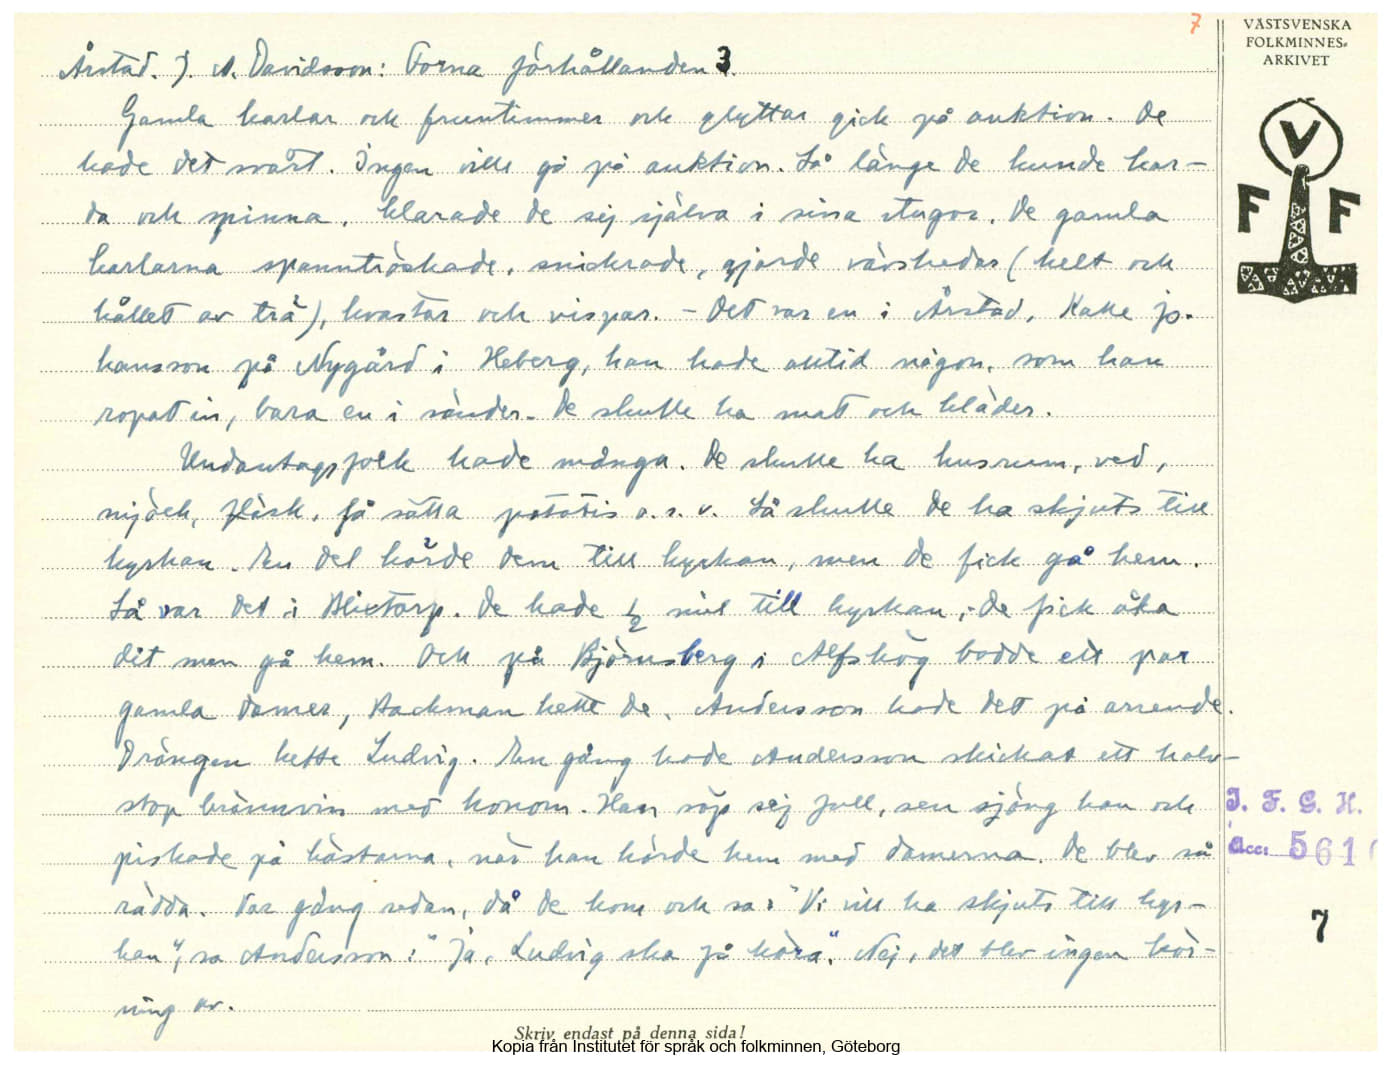 7
VÄSTSVENSKA
FOLKMINNES-
ARKIVET
V
F F
Årstad. J. A. Davidsson: Forna förhållanden 3.
Gamla karlar och fruntimmer och glyttar gick på auktion. De
hade det svårt. Ingen ville gå på auktion. Så länge de kunde kar-
da och spinna, klarade de sej själva i sina stugor. De gamla
karlarna spanntröskade, snickrade, gjorde vävskedar (helt och
hållet av trä), kvastar och vispar. – Det var en i Årstad, Kalle Jo-
hansson på Nygård i Heberg, han hade alltid någon, som han
ropat in, bara en i sänder. De skulle ha mat och kläder.
Undantagsfolk hade många. De skulle ha husrum, ved,
mjölk, fläsk, få sätta potatis o. s. v. Så skulle de ha skjuts till
kyrkan. En del körde dem till kyrkan, men de fick gå hem.
Så var det i Alixtorp. De hade ½ mil till kyrkan, de fick åka
dit men gå hem. Och på Björnsberg i Alfshög bodde ett par
gamla damer, Backman hette de. Andersson hade det på arrende.
Drängen hette Ludvig. En gång hade Andersson skickat ett halv-
stop brännvin med honom. Han söp sej full, sen sjöng han och
piskade på hästarna, när han körde hem med damerna. De blev så
rädda. Var gång sedan, då de kom och sa: "Vi vill ha skjuts till kyr-
kan", sa Andersson: "Ja, Ludvig ska få köra." Nej, det blev ingen kör-
ning av.
I. F. G. H.
Acc: 561
7
Skriv endast på denna sida!
Kopia från Institutet för språk och folkminnen, Göteborg